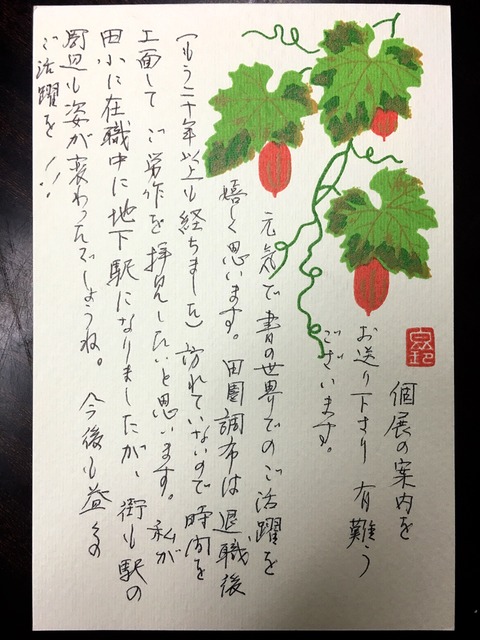 個展の案内を
お送り下さり 有難う
ございます。
元気で書の世界でのご活躍を
嬉しく思います。田園調布は退職後
(もう二十年以上も経ちました)訪れていないので時間を
工面して ご労作を拝見したいと思います。私が
田小に在職中に地下駅になりましたが、街も駅の
周辺も姿が変わったでしょうね。 今後も益々の
ご活躍を!!